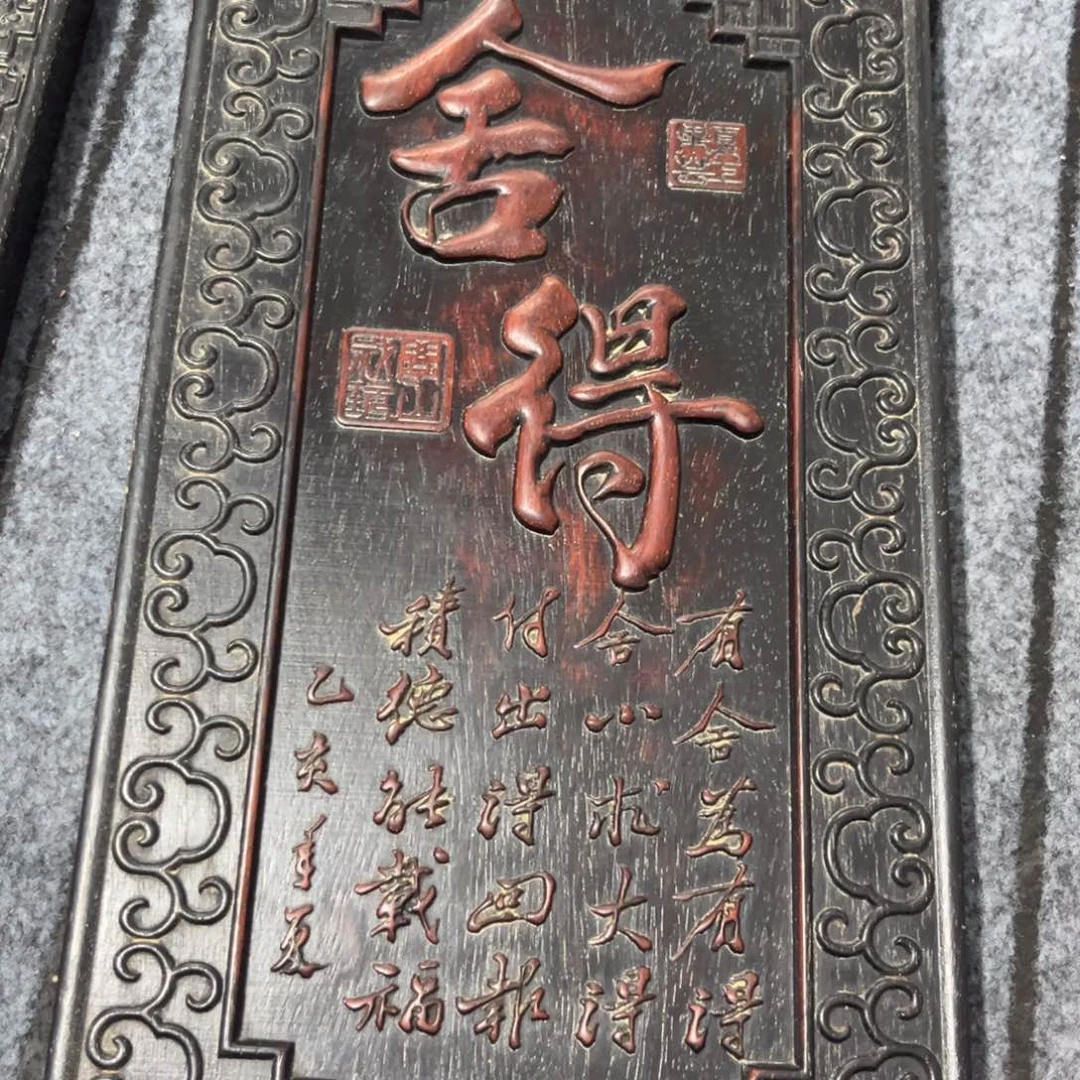 舍得
有舍為有得
舍小求大得
付出得回報
積德能載福
乙亥年夏